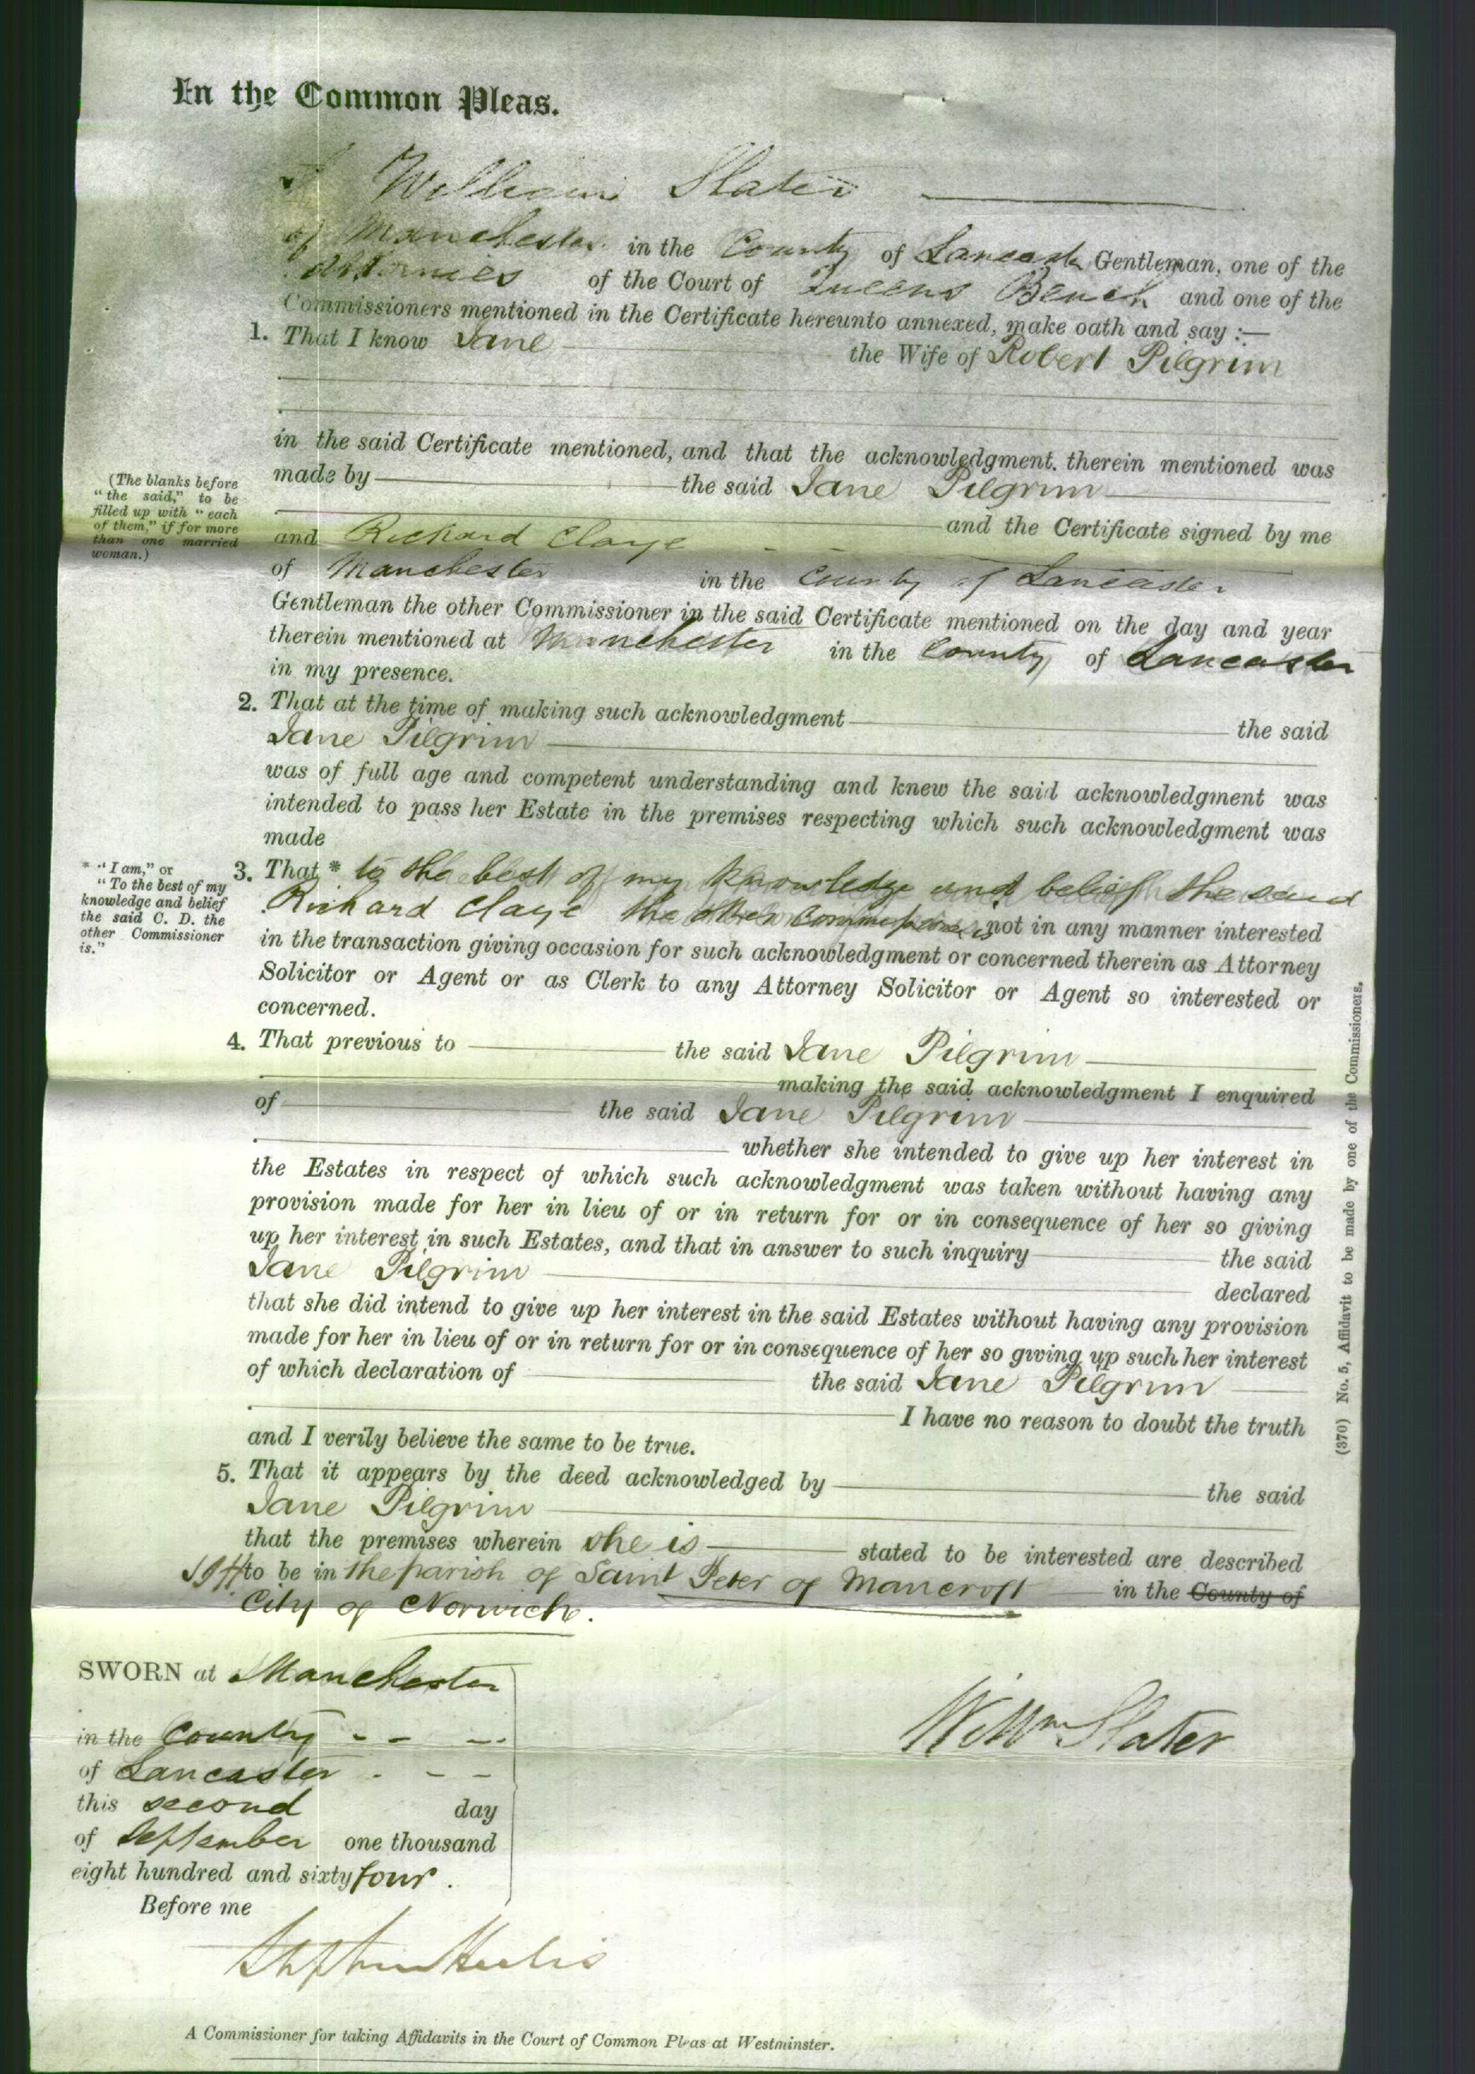 In the Common Pleas.
I William Slater
of Manchester in the County of Lancaster Gentleman, one of the
Attornies of the Court of Queens Bench and one of the
Commissioners mentioned in the Certificate hereunto annexed, make oath and say :—
1. That I know Jane the Wife of Robert Pilgrim
in the said Certificate mentioned, and that the acknowledgment therein mentioned was
made by the said Jane Pilgrim
and the Certificate signed by me
(The blanks before
"the said," to be
filled up with "each
of them," if for more
than one married
woman.)
and Richard Claye
of Manchester in the County of Lancaster
Gentleman the other Commissioner in the said Certificate mentioned on the day and year
therein mentioned at Manchester in the County of Lancaster
in my presence.
2. That at the time of making such acknowledgment the said
Jane Pilgrim
was of full age and competent understanding and knew the said acknowledgment was
intended to pass her Estate in the premises respecting which such acknowledgment was
made
* "I am," or
"To the best of my
knowledge and belief
the said C. D. the
other Commissioner
is."
3. That * to the best of my knowledge and belief the said
Richard Claye the other Commissioner is not in any manner interested
in the transaction giving occasion for such acknowledgment or concerned therein as Attorney
Solicitor or Agent or as Clerk to any Attorney Solicitor or Agent so interested or
concerned.
4. That previous to the said Jane Pilgrim
making the said acknowledgment I enquired
of the said Jane Pilgrim
whether she intended to give up her interest in
the Estates in respect of which such acknowledgment was taken without having any
provision made for her in lieu of or in return for or in consequence of her so giving
up her interest in such Estates, and that in answer to such inquiry the said
Jane Pilgrim
declared
that she did intend to give up her interest in the said Estates without having any provision
made for her in lieu of or in return for or in consequence of her so giving up such her interest
of which declaration of the said Jane Pilgrim
I have no reason to doubt the truth
and I verily believe the same to be true.
5. That it appears by the deed acknowledged by the said
Jane Pilgrim
that the premises wherein she is stated to be interested are described
to be in the parish of Saint Peter of Mancroft in the County of
City of Norwich.
(370) No. 5, Affidavit to be made by one of the Commissioners.
SWORN at Manchester
in the County
of Lancaster
this second day
of September one thousand
eight hundred and sixty four.
Before me
Willm Slater
Stephen Heelis
A Commissioner for taking Affidavits in the Court of Common Pleas at Westminster.